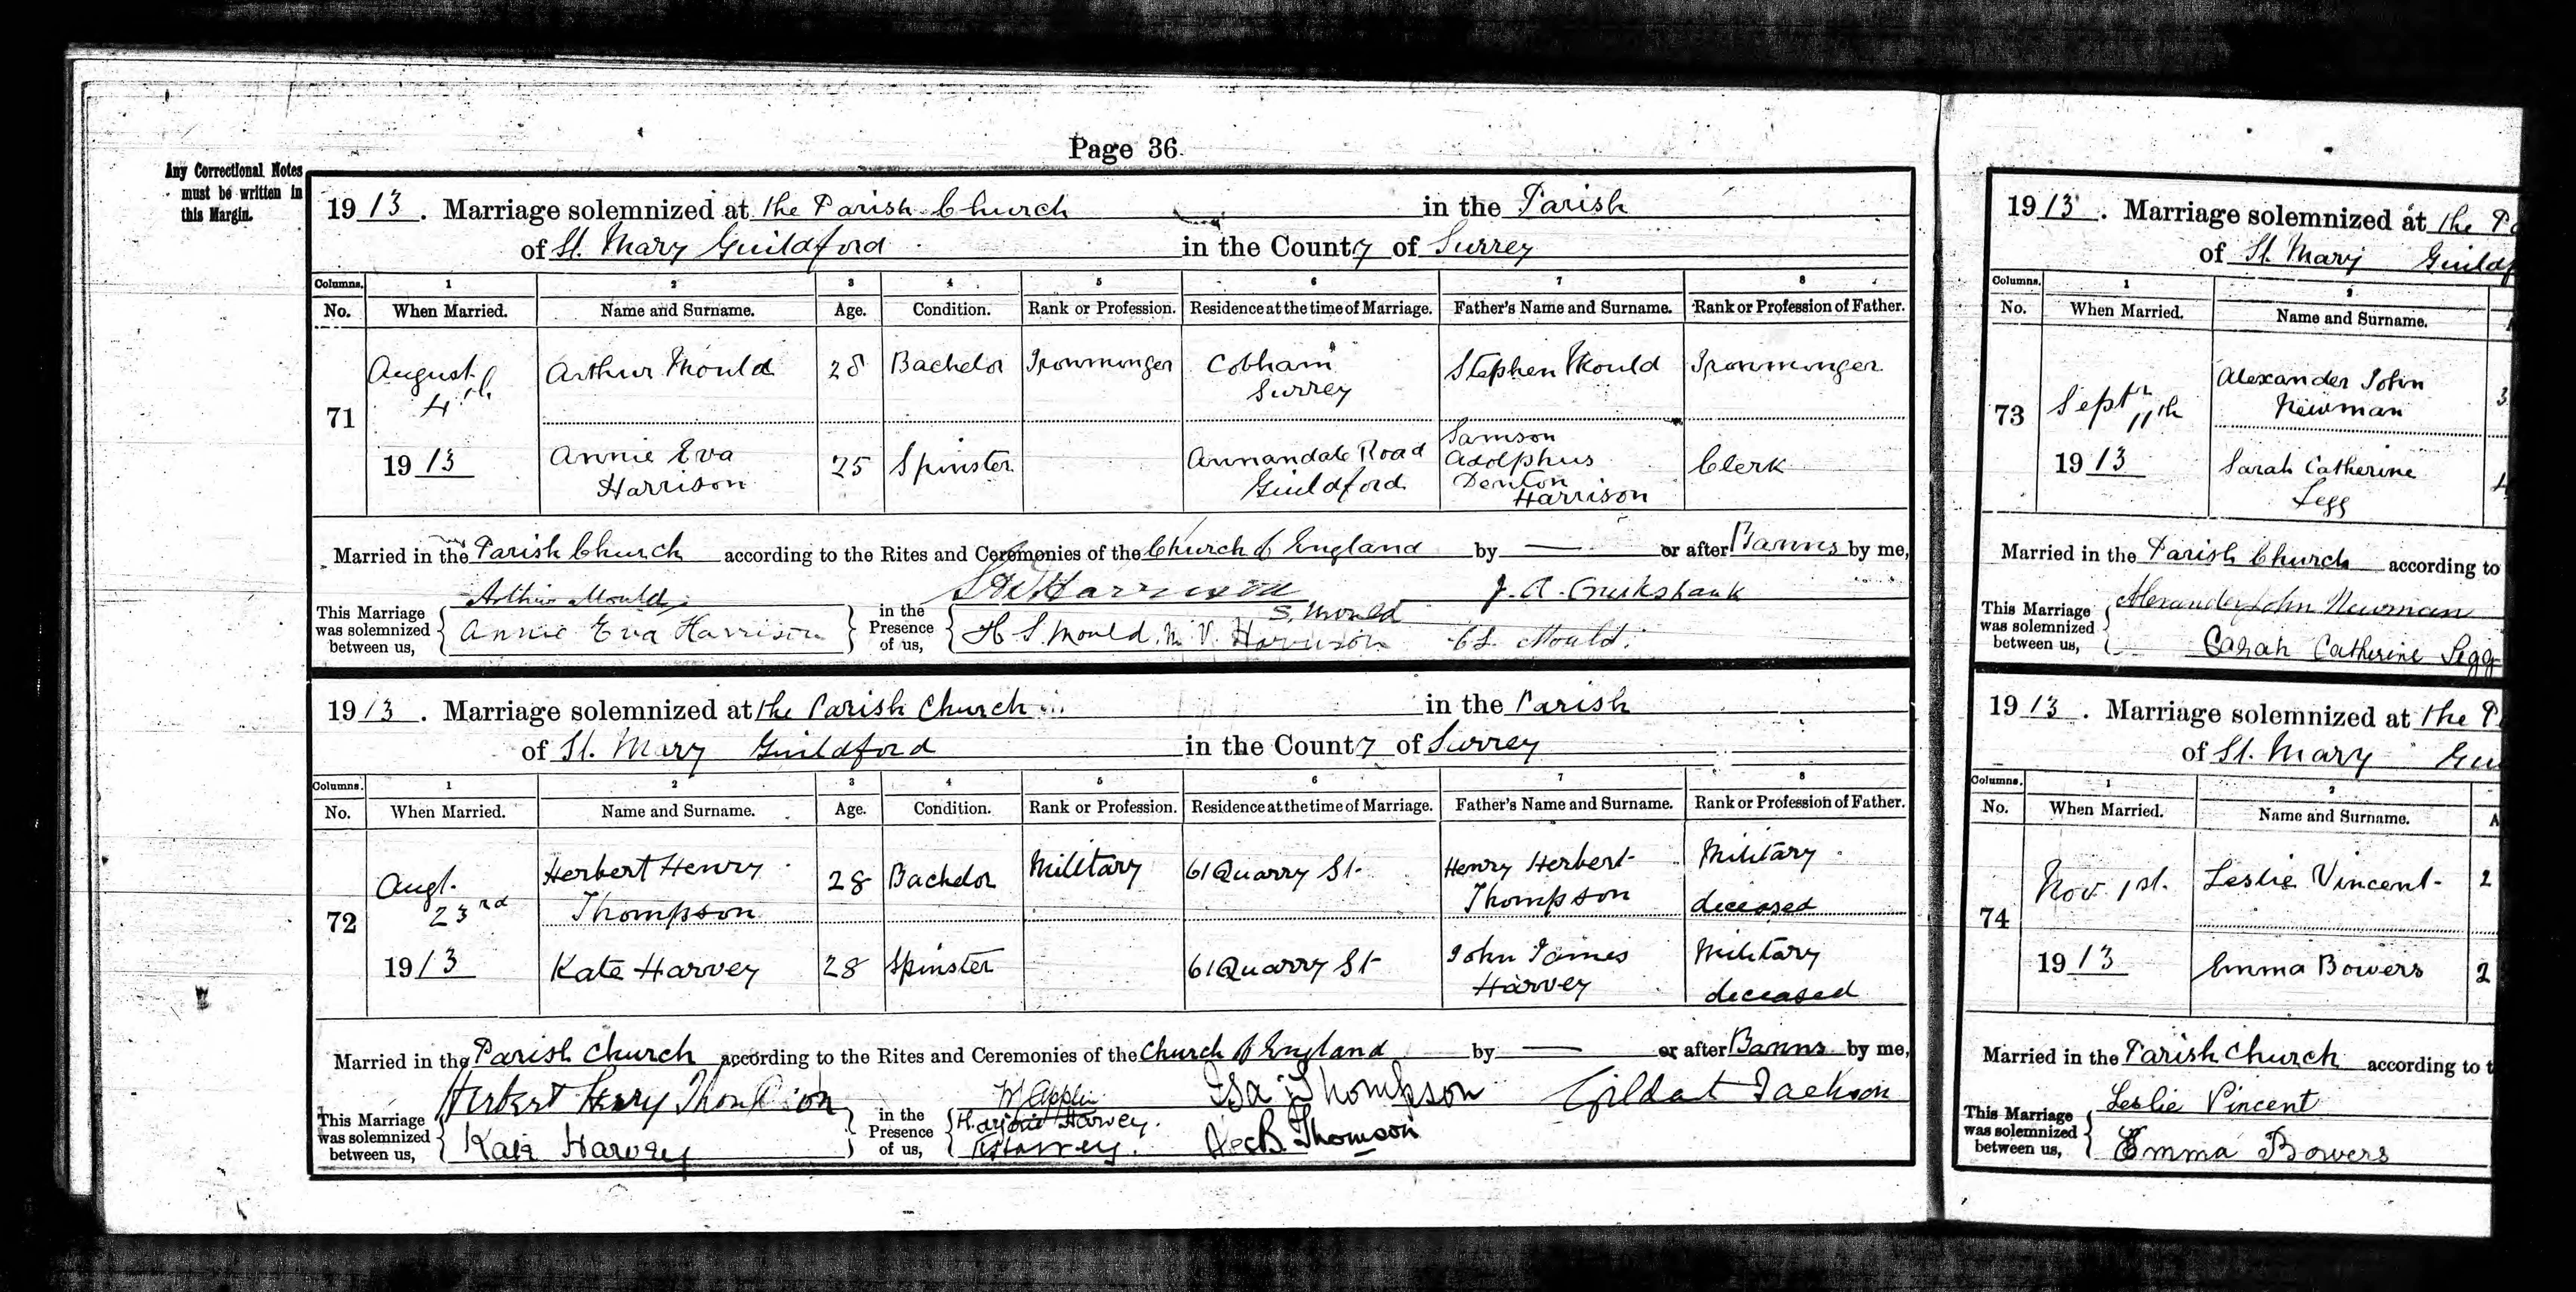 Page 36.
Any Correctional Notes
must be written in
this Margin.
1913. Marriage solemnized at the Parish Church in the Parish
of St. Mary Guildford in the County of Surrey
Columns. 1 2 3 4 5 6 7 8
No. When Married. Name and Surname. Age. Condition. Rank or Profession. Residence at the time of Marriage. Father's Name and Surname. Rank or Profession of Father.
71 August 4th 1913 Arthur Mould 28 Bachelor Ironmonger Cobham Surrey Stephen Mould Ironmonger
Annie Eva Harrison 25 Spinster Annandale Road Guildford Samson Adolphus Denton Harrison Clerk
Married in the Parish Church according to the Rites and Ceremonies of the Church of England by — or after Banns by me,
This Marriage was solemnized between us, Arthur Mould Annie Eva Harrison in the Presence of us, Harrison S. Mould H S. Mould. M V. Harrison Mould. J. A. Cruikshank
1913. Marriage solemnized at the Parish Church in the Parish
of St. Mary Guildford in the County of Surrey
Columns. 1 2 3 4 5 6 7 8
No. When Married. Name and Surname. Age. Condition. Rank or Profession. Residence at the time of Marriage. Father's Name and Surname. Rank or Profession of Father.
72 Augt. 23rd 1913 Herbert Henry Thompson 28 Bachelor Military 61 Quarry St. Henry Herbert Thompson Military deceased
Kate Harvey 28 Spinster 61 Quarry St John James Harvey Military deceased
Married in the Parish Church according to the Rites and Ceremonies of the Church of England by — or after Banns by me,
This Marriage was solemnized between us, Herbert Henry Thompson Kate Harvey in the Presence of us, Marjorie Harvey. Harvey. Thompson Thomson Gildart Jackson
1913. Marriage solemnized at the
of St. Mary
Columns. 1 2
No. When Married. Name and Surname.
73 Septr 11th 1913 Alexander John Newman
Sarah Catherine Legg
Married in the Parish Church according to
This Marriage was solemnized between us, Alexander John Newman Sarah Catherine Legg
1913. Marriage solemnized at the
of St. Mary
Columns. 1 2
No. When Married. Name and Surname.
74 Nov. 1st. 1913 Leslie Vincent 2
Emma Bowers 2
Married in the Parish Church according to
This Marriage was solemnized between us, Leslie Vincent Emma Bowers